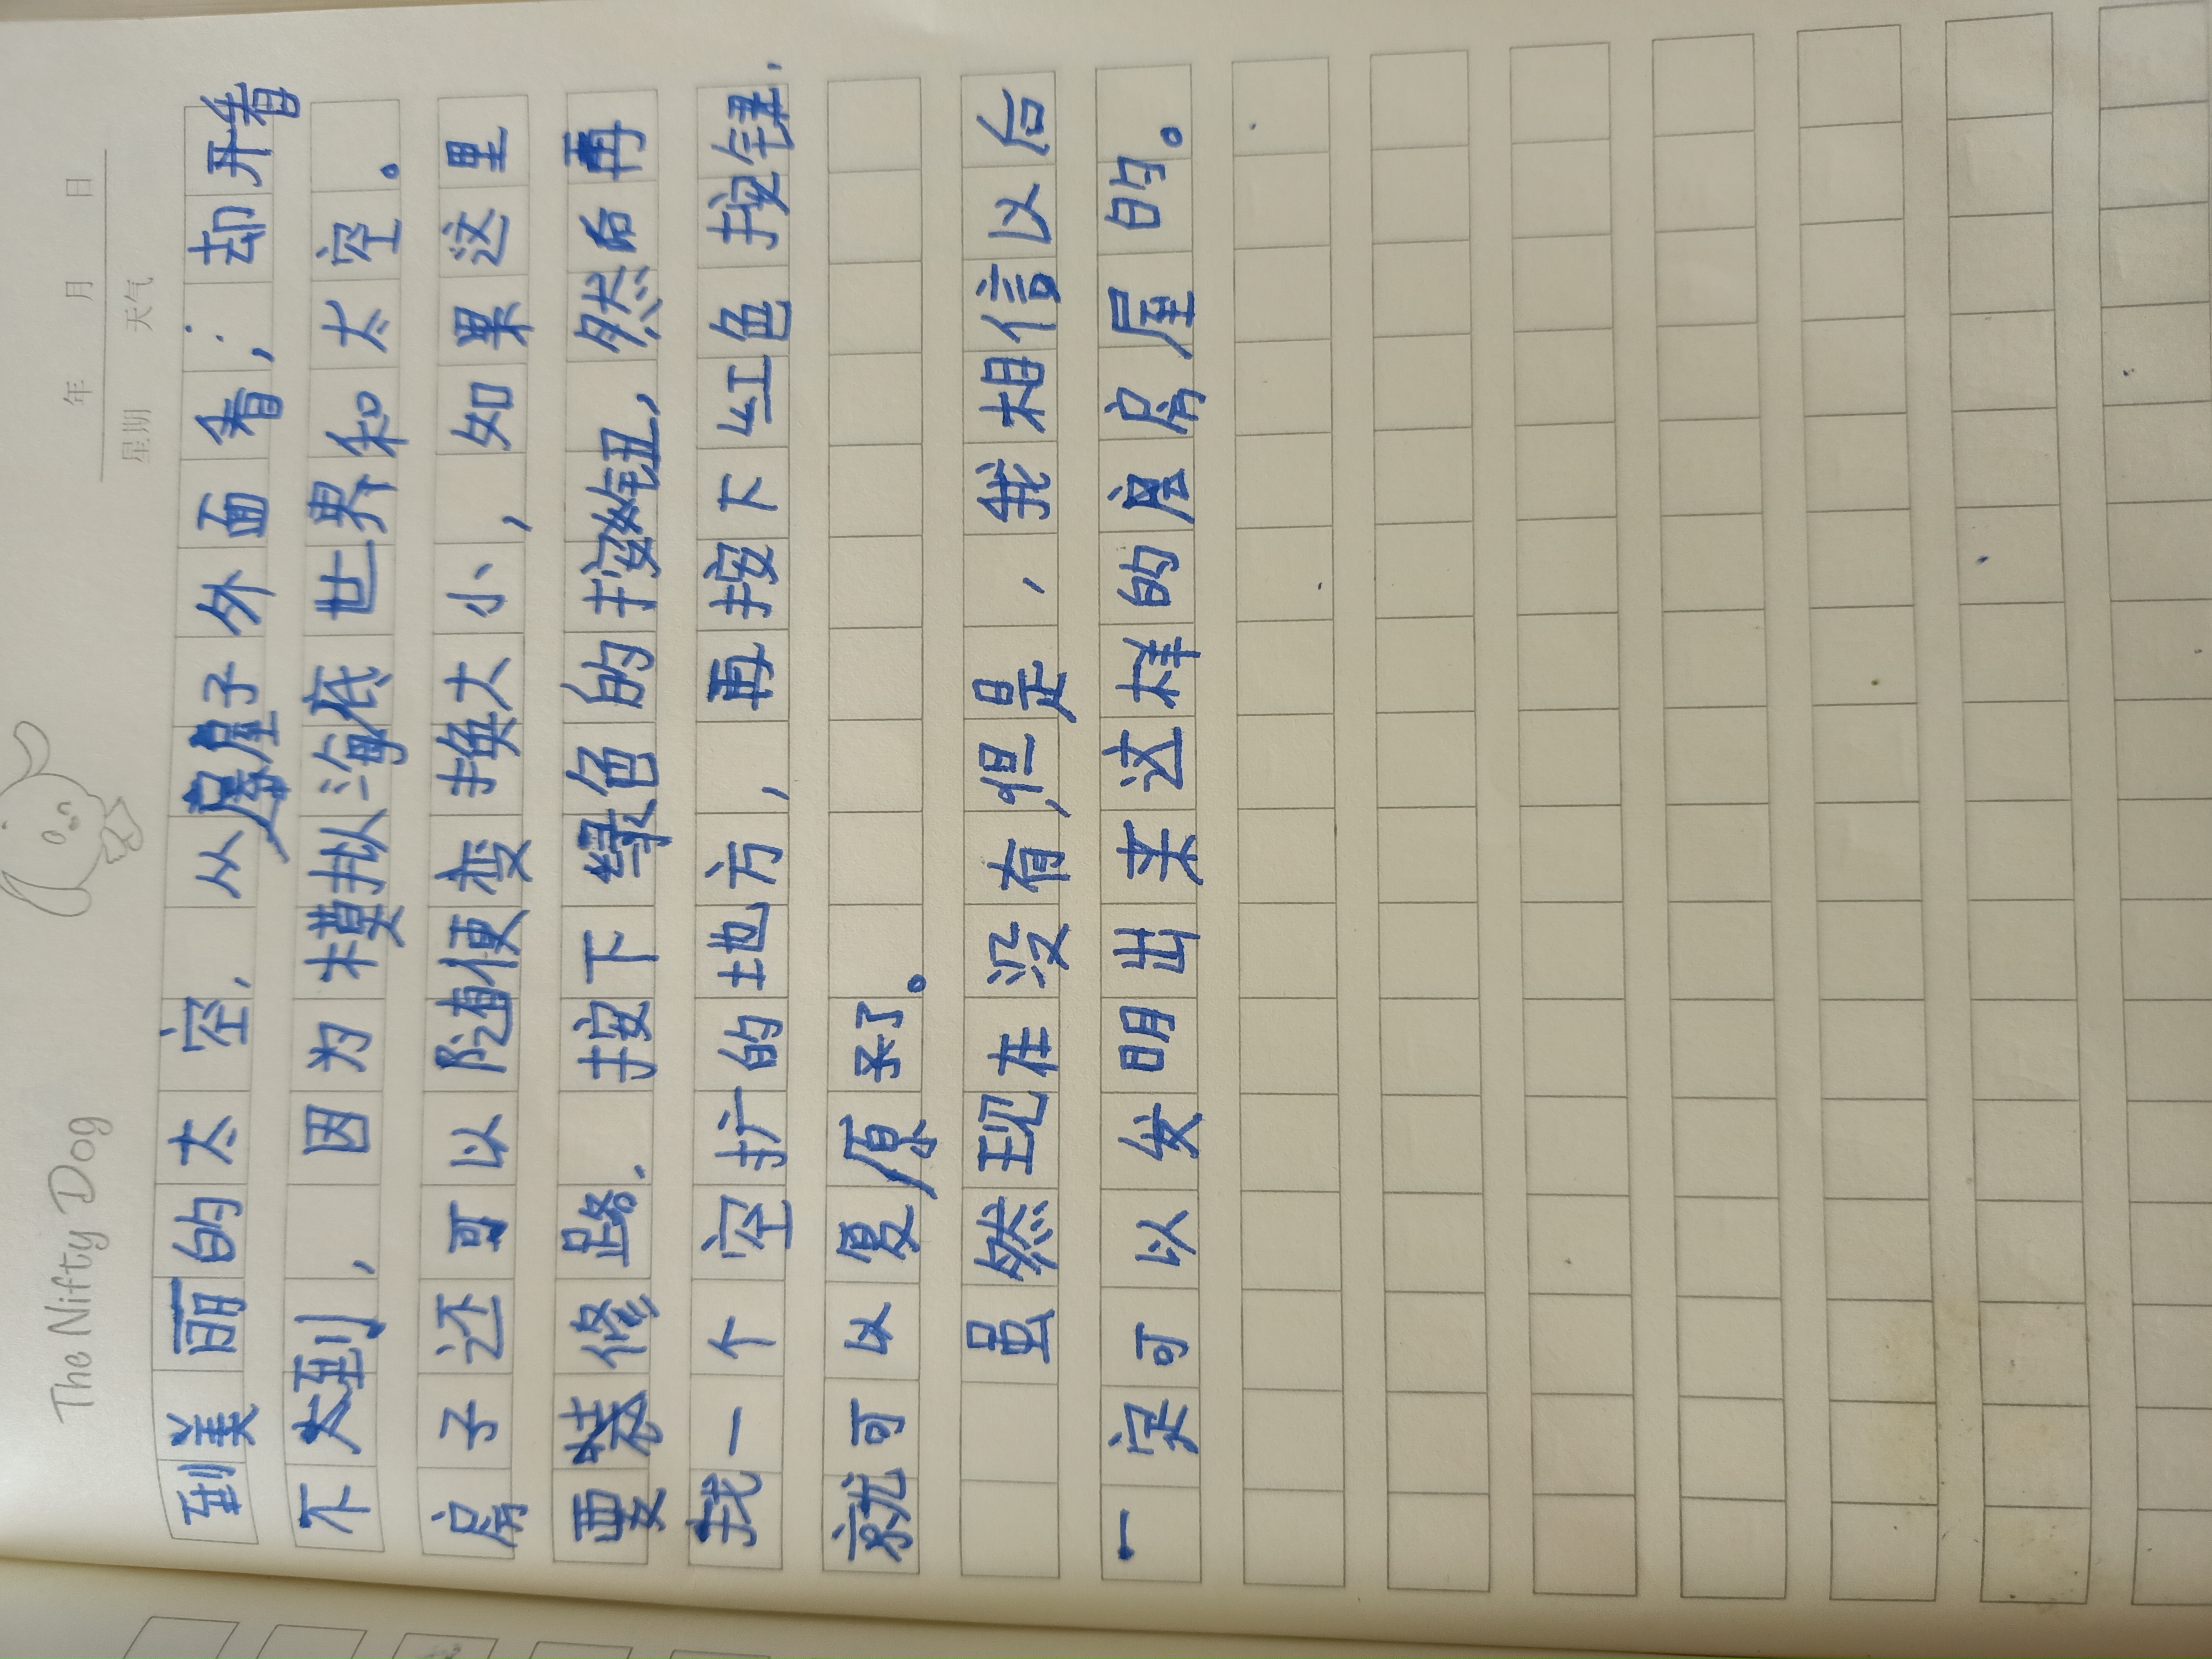 The Nifty Dog
年 月 日
星期 天气
到美丽的太空，从屋子外面看；却开看
不太到，因为模拟海底世界和太空。
房子还可以随便变换大小，如果这里
要装修路，按下绿色的按钮，然后再
找一个空扩的地方，再按下红色按键，
就可以复原了。
虽然现在没有，但是，我相信以后
一定可以发明出来这样的房屋的。